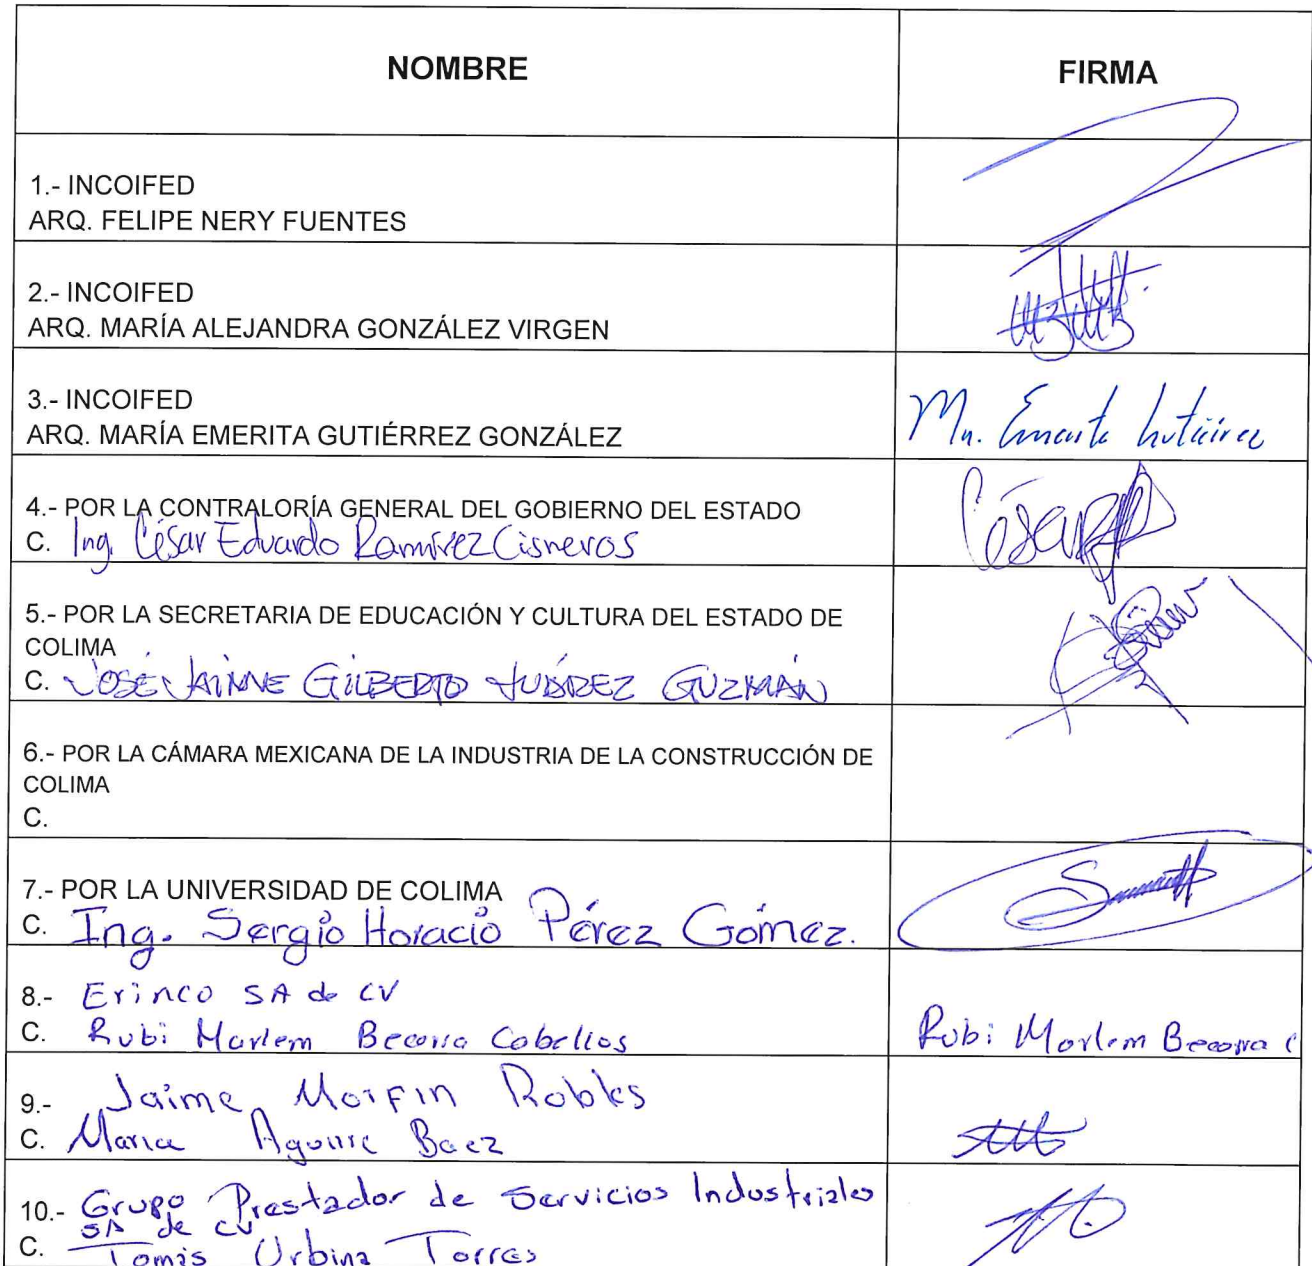 NOMBRE
FIRMA
1.- INCOIFED
ARQ. FELIPE NERY FUENTES
2.- INCOIFED
ARQ. MARÍA ALEJANDRA GONZÁLEZ VIRGEN
3.- INCOIFED
ARQ. MARÍA EMERITA GUTIÉRREZ GONZÁLEZ
4.- POR LA CONTRALORÍA GENERAL DEL GOBIERNO DEL ESTADO
C. Ing. César Eduardo Ramírez Cisneros
César
5.- POR LA SECRETARIA DE EDUCACIÓN Y CULTURA DEL ESTADO DE
COLIMA
C. JOSÉ JAIME GILBERTO JUÁREZ GUZMÁN
6.- POR LA CÁMARA MEXICANA DE LA INDUSTRIA DE LA CONSTRUCCIÓN DE
COLIMA
C.
7.- POR LA UNIVERSIDAD DE COLIMA
C. Ing. Sergio Horacio Pérez Gómez.
8.- Erinco SA de CV
C. Rubi Marlem Becerra Cobellos
Rubi Marlem Becerra C
9.- Jaime Morfin Robles
C. Maria Aguirre Baez
10.- Grupo Prestador de Servicios Industriales
SA de CV
C. Tomás Urbina Torres